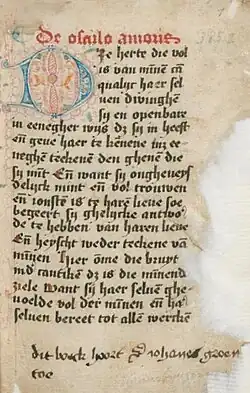 De osculo amoris
Die herte die vol
is van minnē eñ
qualijc haer sel
uen dwinghē
sij en openbare
in eenegher wijs dz sij in heeft
eñ geue haer te kēnene inz ee
neghē teekenē den ghenen die
sij mīt Eñ want sij ongheueyſ
delijck mint eñ vol trouwen
eñ ionſten is te harē lieue soe
begeert sij ghelijcke antwo
de te hebben van haren lieue
Eñ heyscht weder teekene vā
minnen Hier ōme die bruyt
inđ cantikē dz is die minend
ziele want sij haer seluē ghe
uoelde vol der minnen eñ ha
seluen bereet tot allē wercken
dit boeck hoort johānes groen
toe